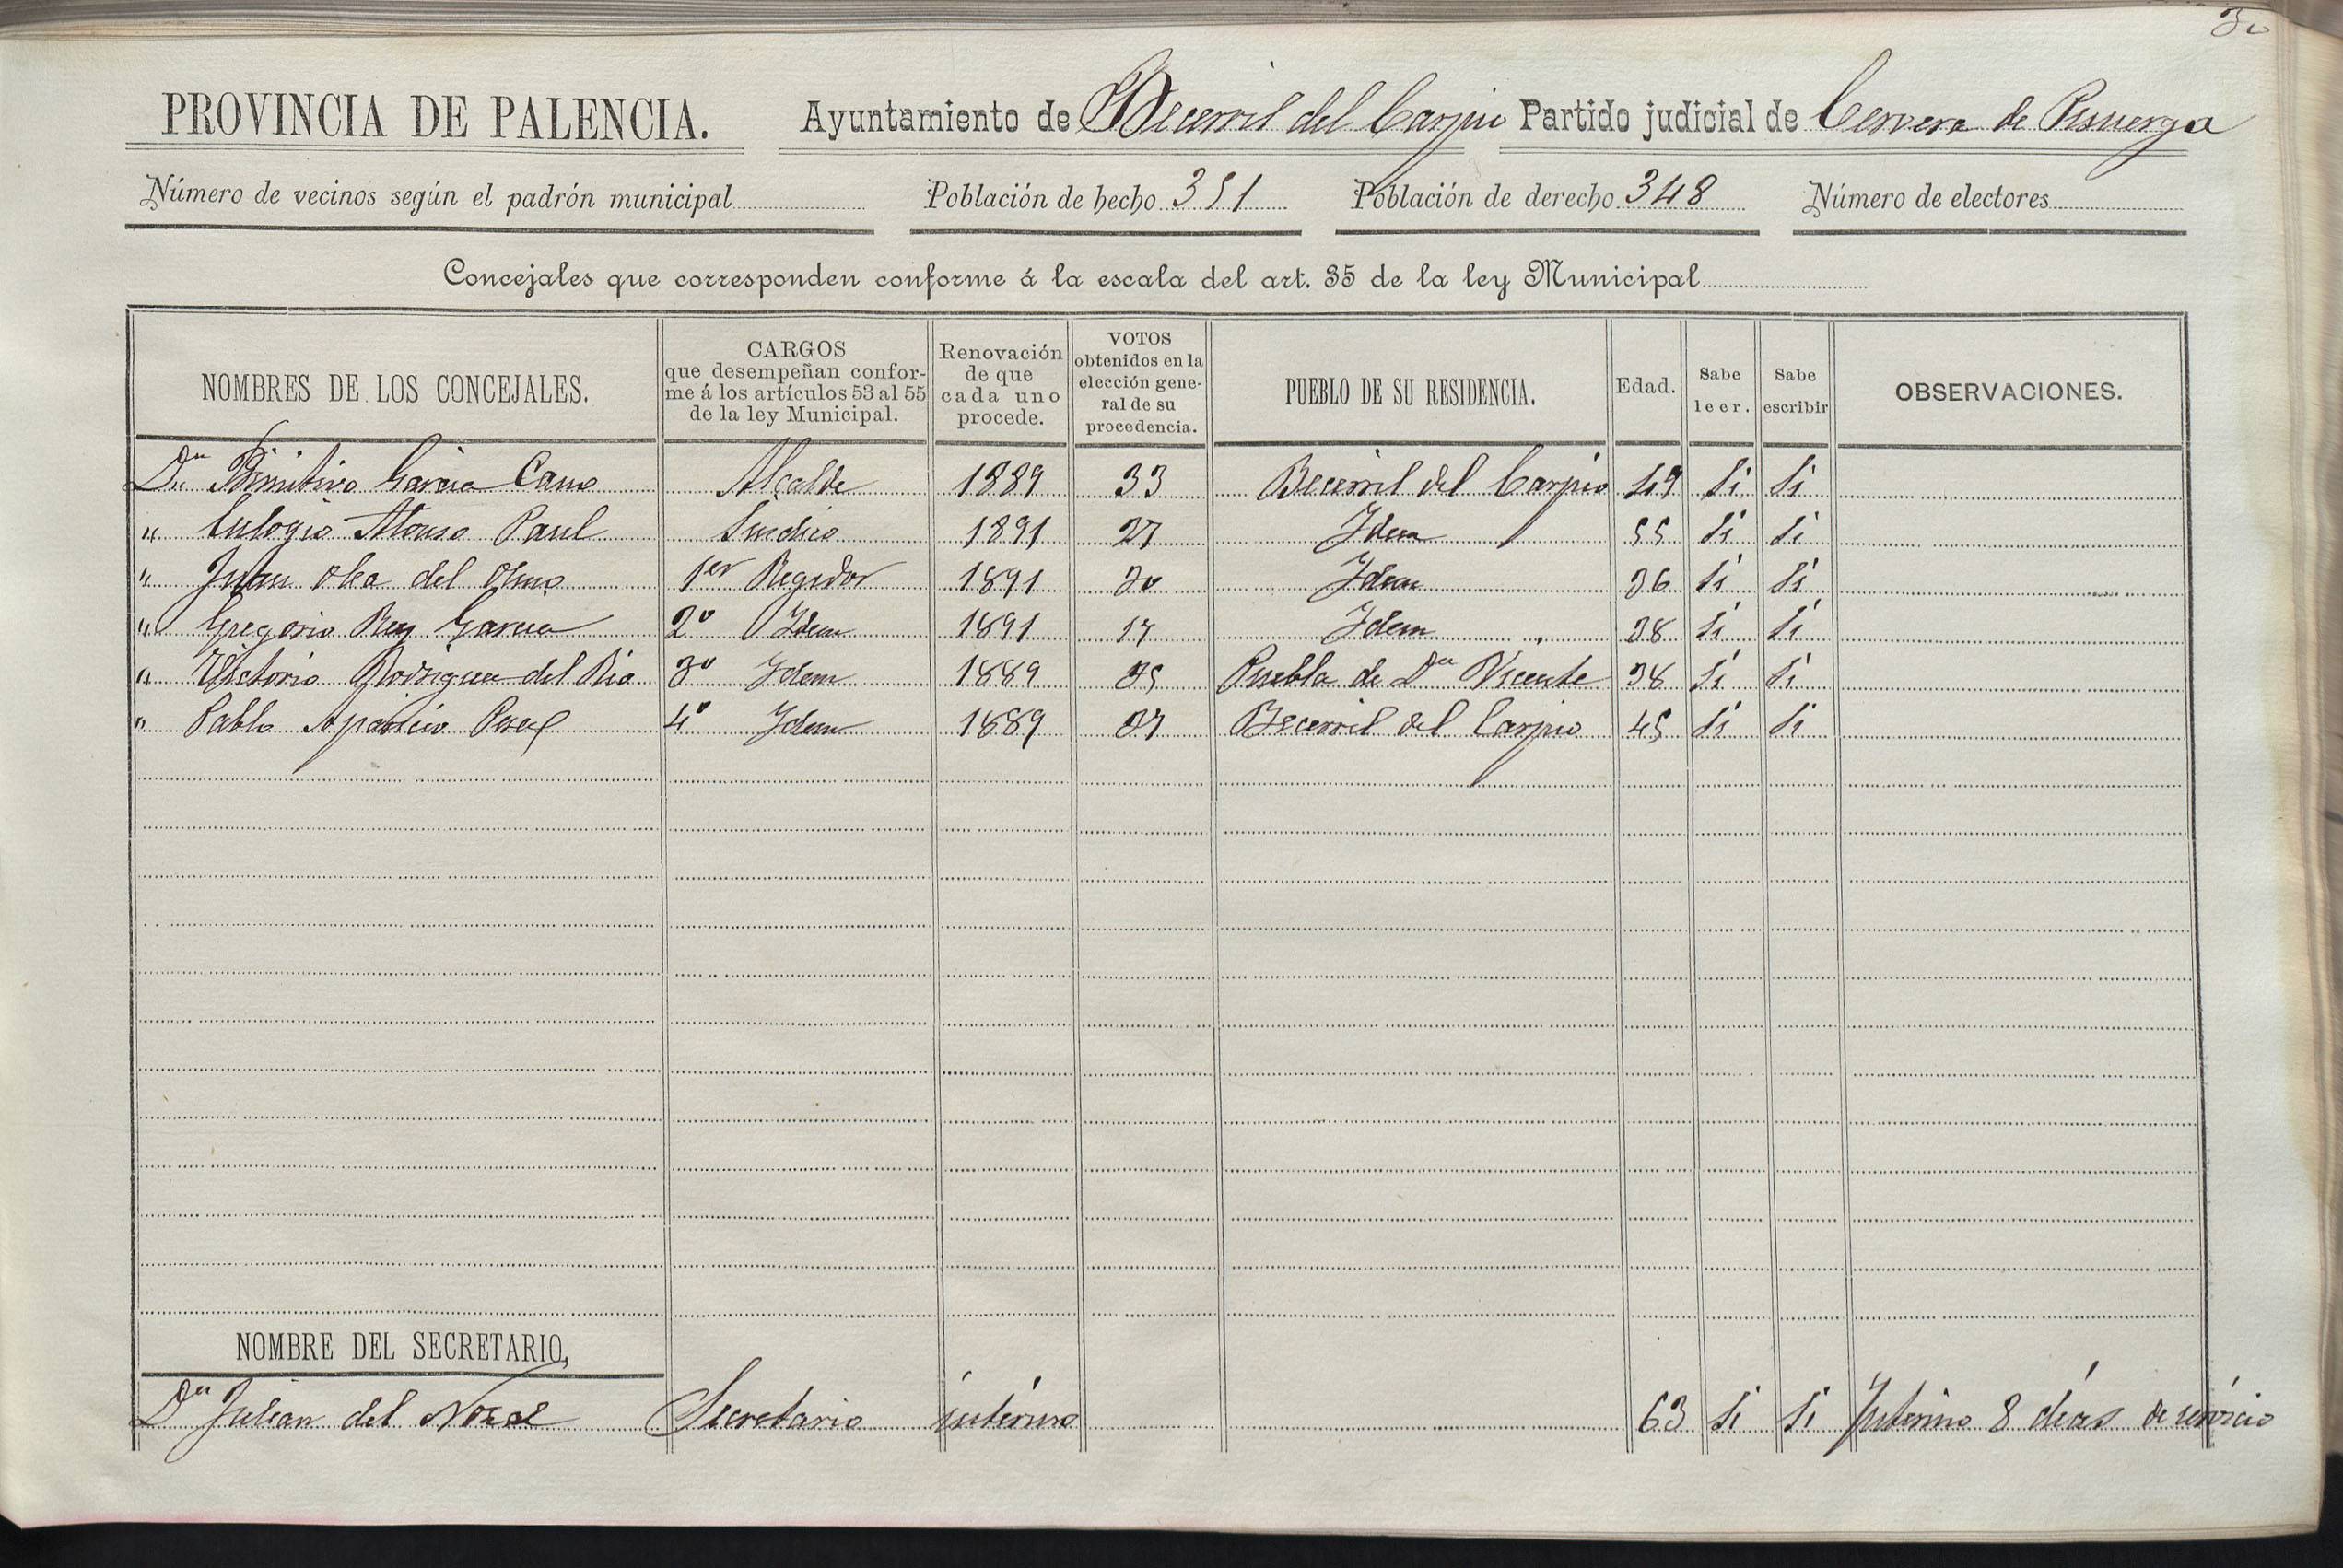 30
PROVINCIA DE PALENCIA. Ayuntamiento de Becerril del Carpio Partido judicial de Cervera de Pisuerga
Número de vecinos según el padrón municipal Población de hecho 351 Población de derecho 348 Número de electores
Concejales que corresponden conforme á la escala del art. 35 de la ley Municipal
NOMBRES DE LOS CONCEJALES. CARGOS que desempeñan conforme á los artículos 53 al 55 de la ley Municipal. Renovación de que cada uno procede. VOTOS obtenidos en la elección general de su procedencia. PUEBLO DE SU RESIDENCIA. Edad. Sabe leer. Sabe escribir OBSERVACIONES.
Dn Primitivo Garcia Cano Alcalde 1889 33 Becerril del Carpio 49 Si Si
" Eulogio Alonso Paul Sindico 1891 27 Idem 55 Si Si
" Juan Olea del Olmo 1er Regidor 1891 20 Idem 36 Si Si
" Gregorio Rey Garcia 2º Idem 1891 17 Idem 38 Si Si
" Victorio Rodriguez del Rio 3º Idem 1889 35 Puebla de Dn Vicente 38 Si Si
" Pablo Aparicio Perez 4º Idem 1889 37 Becerril del Carpio 45 Si Si
NOMBRE DEL SECRETARIO,
Dn Julian del Nozal Secretario interino 63 Si Si Interino 8 dias de servicio